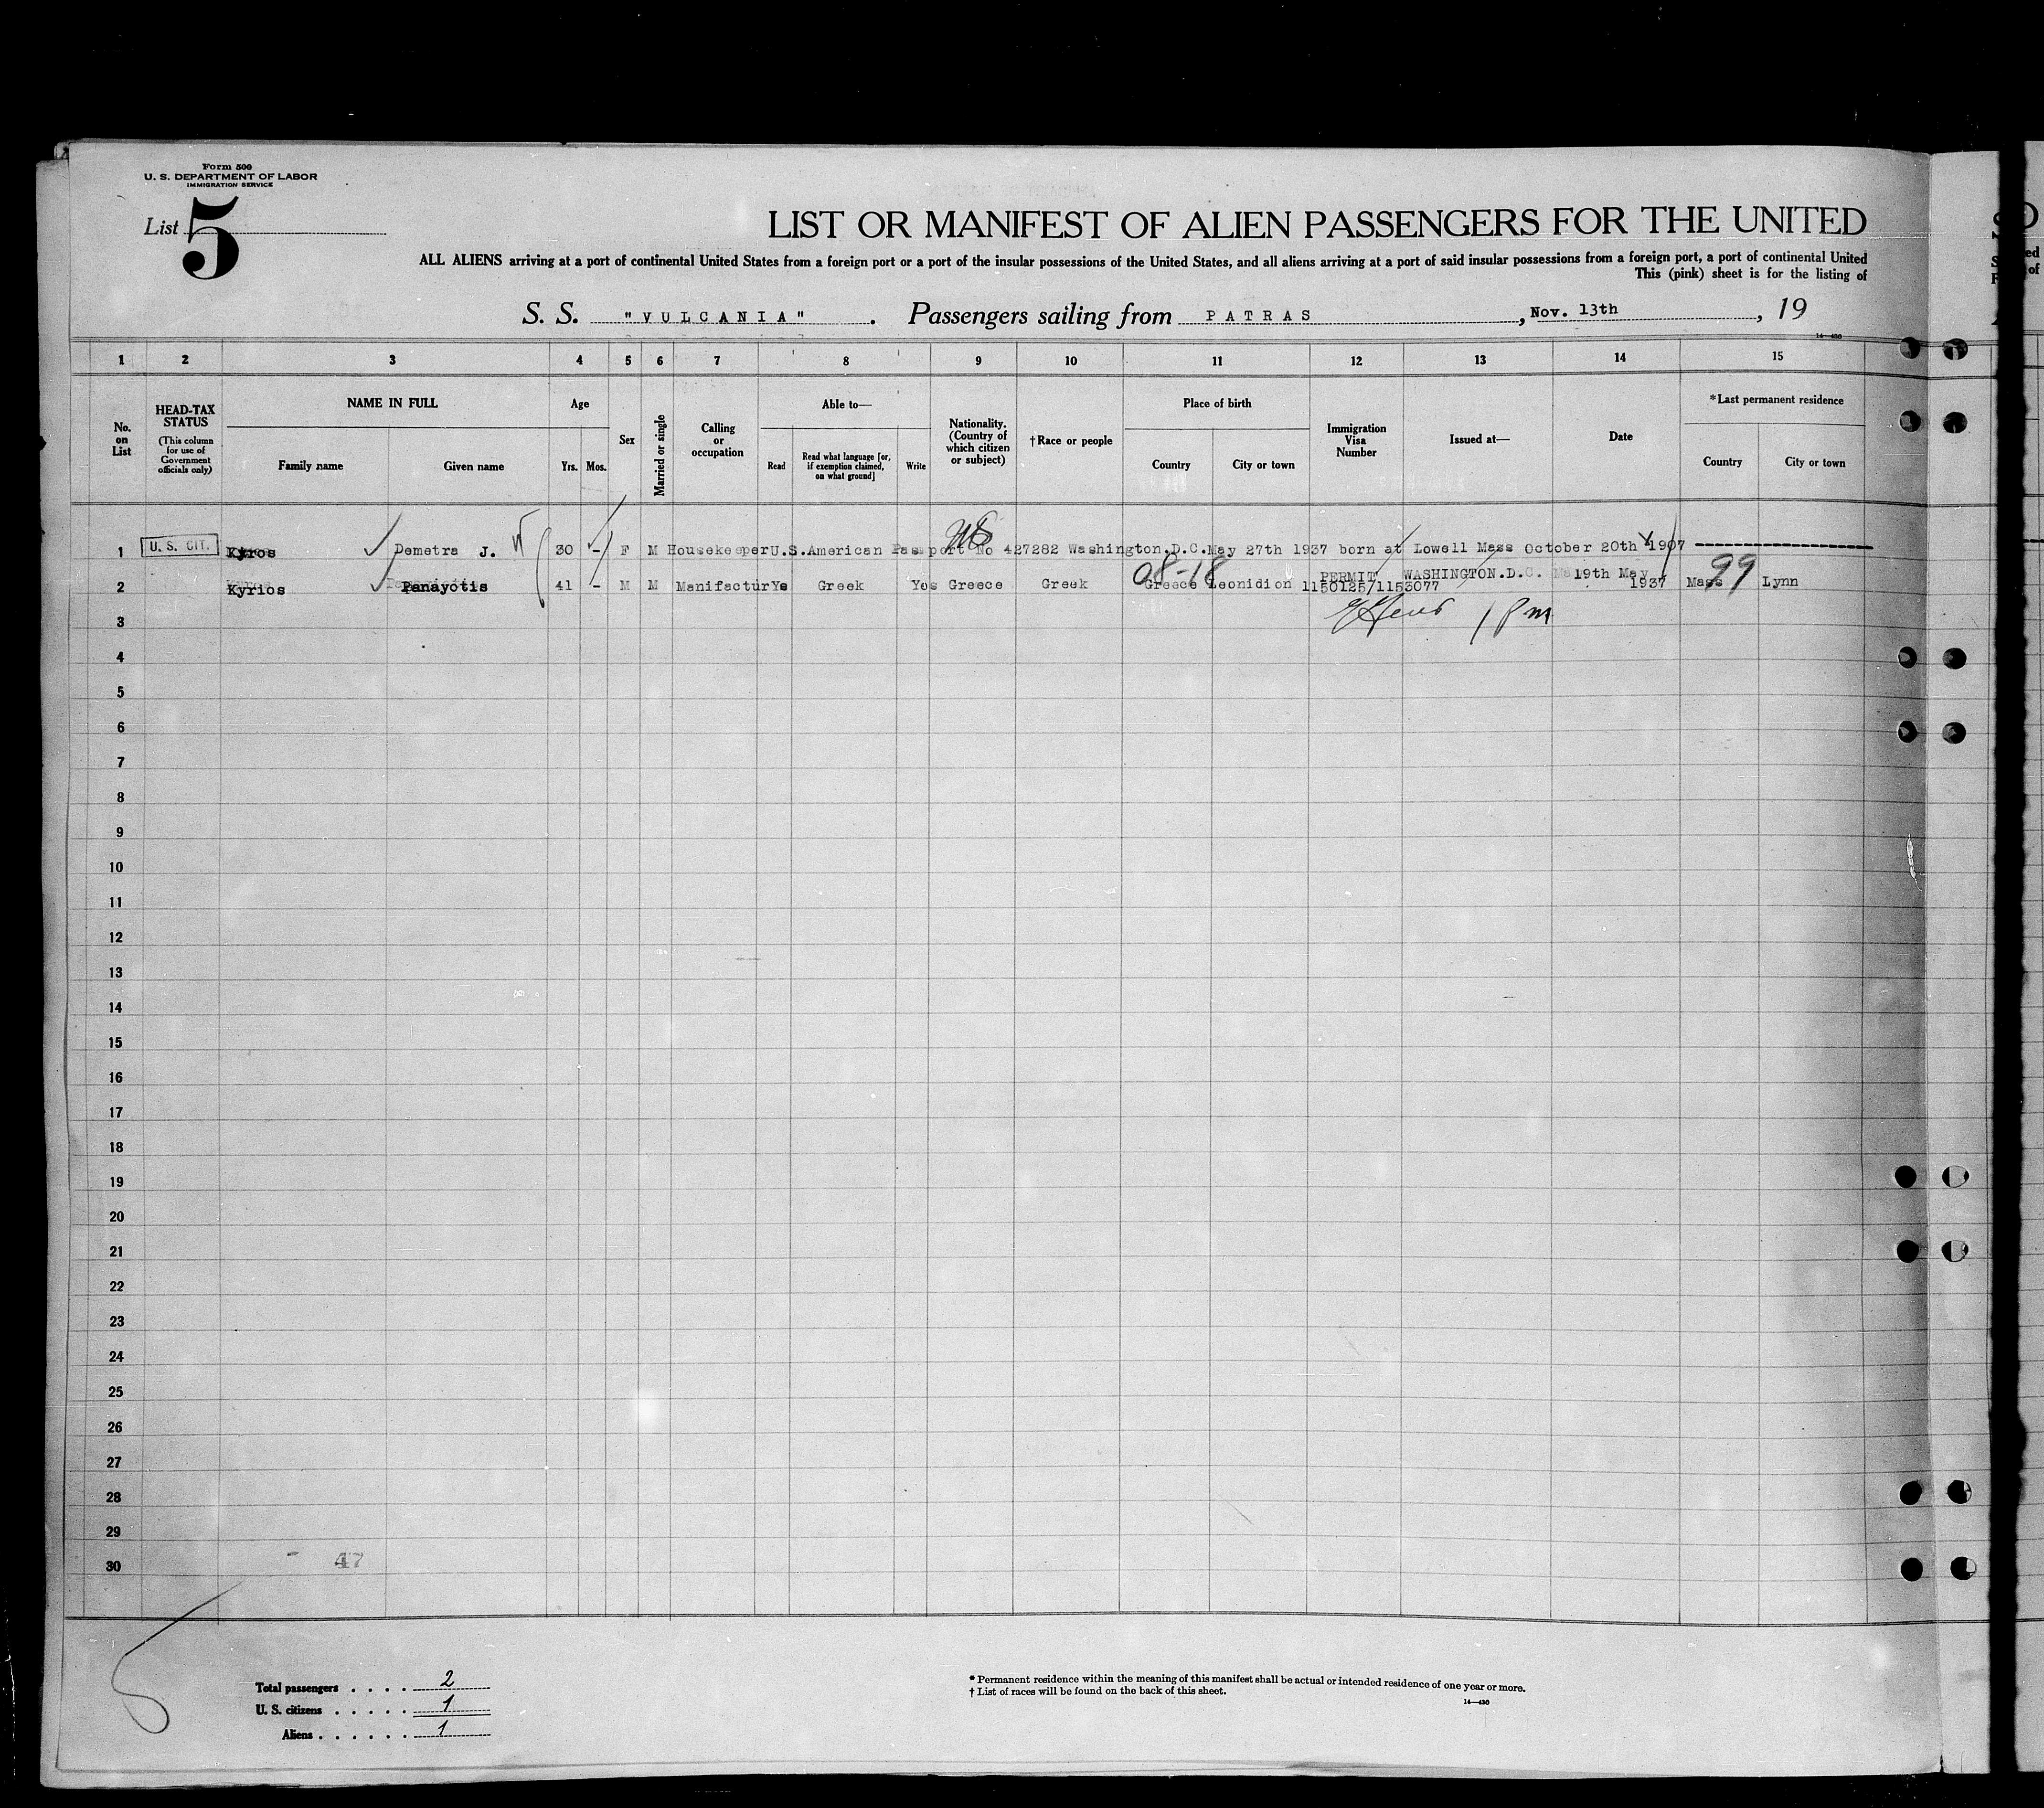 Form 500
U. S. DEPARTMENT OF LABOR
IMMIGRATION SERVICE
List 5
LIST OR MANIFEST OF ALIEN PASSENGERS FOR THE UNITED
ALL ALIENS arriving at a port of continental United States from a foreign port or a port of the insular possessions of the United States, and all aliens arriving at a port of said insular possessions from a foreign port, a port of continental United
This (pink) sheet is for the listing of
S. S. "VULCANIA". Passengers sailing from PATRAS, Nov. 13th, 19
14—430
1 2 3 4 5 6 7 8 9 10 11 12 13 14 15
No. on List
HEAD-TAX STATUS (This column for use of Government officials only)
NAME IN FULL
Family name Given name
Age
Yrs. Mos.
Sex
Married or single
Calling or occupation
Able to—
Read
Read what language [or, if exemption claimed, on what ground]
Write
Nationality. (Country of which citizen or subject)
†Race or people
Place of birth
Country City or town
Immigration Visa Number
Issued at—
Date
*Last permanent residence
Country City or town
US
1 U. S. CIT. Kyros Demetra J. 30 - F M Housekeeper U.S.American Passport No 427282 Washington.D.C.May 27th 1937 born at Lowell Mass October 20th 1907
08-18 99
PERMIT WASHINGTON.D.C. 19th May
2 Kyrios Panayotis 41 - M M Manifactur Ye Greek Yes Greece Greek Greece Leonidion 1150125/1153077 1937 Mass Lynn
3
4
5
6
7
8
9
10
11
12
13
14
15
16
17
18
19
20
21
22
23
24
25
26
27
28
29
30
47
Total passengers . . . . 2
U. S. citizens . . . . . 1
Aliens . . . . . . 1
* Permanent residence within the meaning of this manifest shall be actual or intended residence of one year or more.
† List of races will be found on the back of this sheet.
14—430